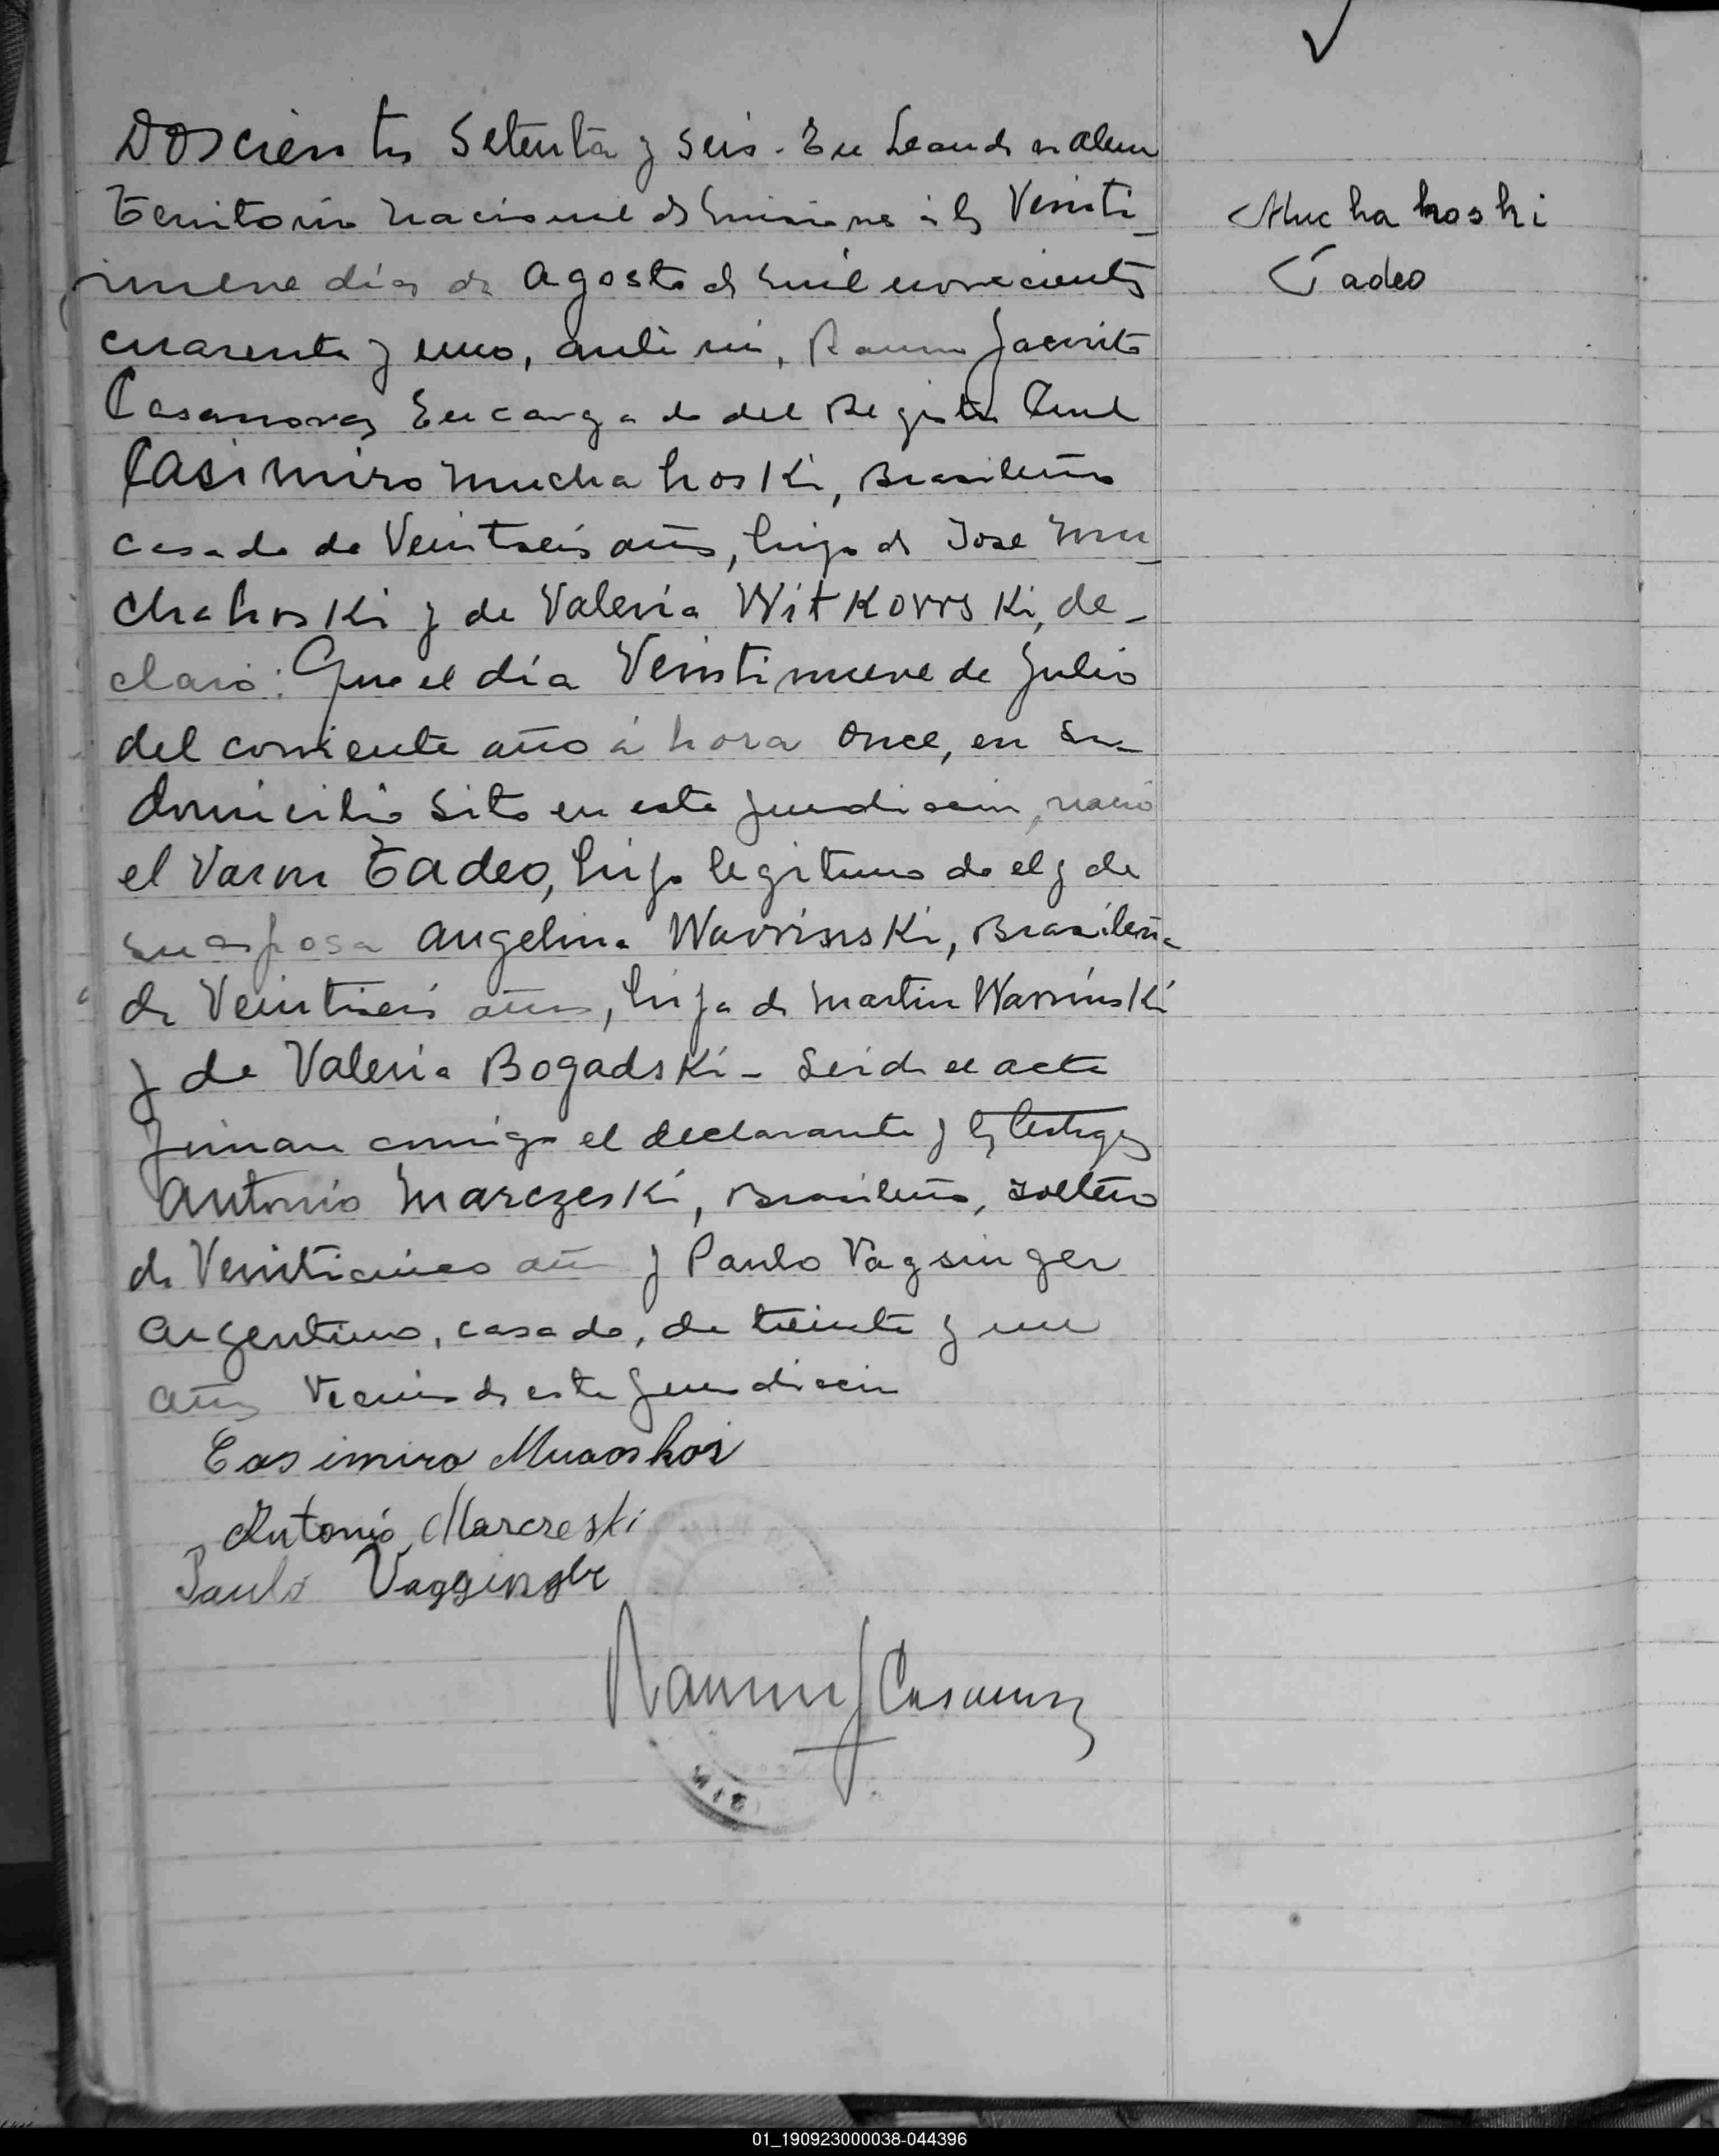 Doscientos Setenta y seis. En Leandro n alem
Territorio Nacional de Misiones á los Veinti-
nueve días de Agosto de mil novecientos
cuarenta y uno, ante mi, Ramon Jacinto
Casanovas Encargado del Registro Civil
Casimiro Muchahoski, Brasileño
casado de Veintseis años, hijo de Jose Mu-
chahoski y de Valeria Witkowski, de-
claró: Que el día Veintinueve de Julio
del corriente año á hora once, en su
domicilio sito en esta jurisdiccion, nació
el Varon Tadeo, hijo legitimo de el y de
su esposa Angelina Wawinski, Brasileña
de Veintiseis años, hija de Martin Wawinski
y de Valeria Bogadski - Leida el acta
firman conmigo el declarante y los testigos
Antonio Marczeski, Brasileño, soltero
de Veinticinco años y Paulo Vagsinger
Argentino, casado, de treinta y un
años Vecinos de esta jurisdiccion
Casimiro
Antonio Marczeski
Paulo
Ramon J Casanovas
Muchahoski
Tadeo
01_190923000038-044396